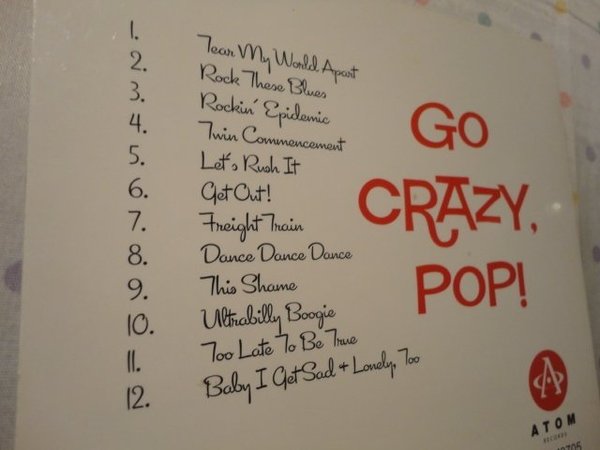 1. Tear My World Apart
2. Rock These Blues
3. Rockin' Epidemic
4. Twin Commencement
5. Let's Rush It
6. Get Out!
7. Freight Train
8. Dance Dance Dance
9. This Shame
10. Ultrabilly Boogie
11. Too Late To Be True
12. Baby I Get Sad + Lonely, Too
GO
CRAZY,
POP!
A
ATOM
RECORDS